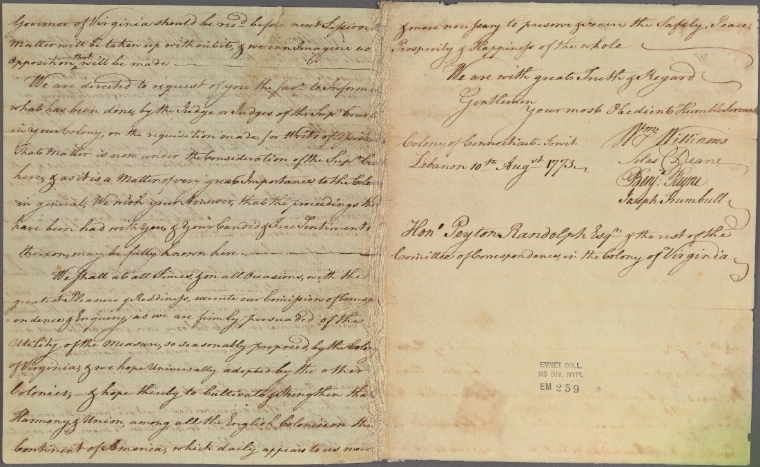 Governor of Virginia should be recd. before next Session
Matter will be taken up without it, & we can Imagine no
Opposition that will be made
We are directed to request of you the favr. to Inform
what has been done, by the Judge or Judges of the Supr. Court
in your Colony, on the requisition made, for Writs of
That Matter is now under the Consideration of the Supr.
here, & as it is a Matter of very great Importance to the
in general, We wish your Answer, that the proceedings
have been had with you, & your Candid & Free Sentiments
thereon, may be fully known here
We Shall at all Times, & on all Occasions, with the
greatest Pleasure & Readiness, execute our Comission of
ondence & Enquiry, as we are firmly persuaded of the
Utility of the Measure, so seasonably proposed by the
of Virginia, & we hope Universally adopted by the other
Colonies, & hope thereby to Cultivate & Strengthen the
Harmony & Union, among all the English Colonies on the
Continent of America, which daily appears to us now
& more necessary to preserve & secure the Safety, Peace,
Prosperity & Happiness of the whole
We are with great Truth & Regard
Gentlemen
Your most Obedient Humble Servants
Wm. Williams
Colony of Connecticut
Silas Deane
Lebanon 10th Augst 1773
Benj. Payne
Joseph Trumbull
Honl. Peyton Randolph Esqr. & the rest of the
Committee of Correspondence, in the Colony of Virginia
EMMET COLL.
MS DIV. NYPL
EM 259